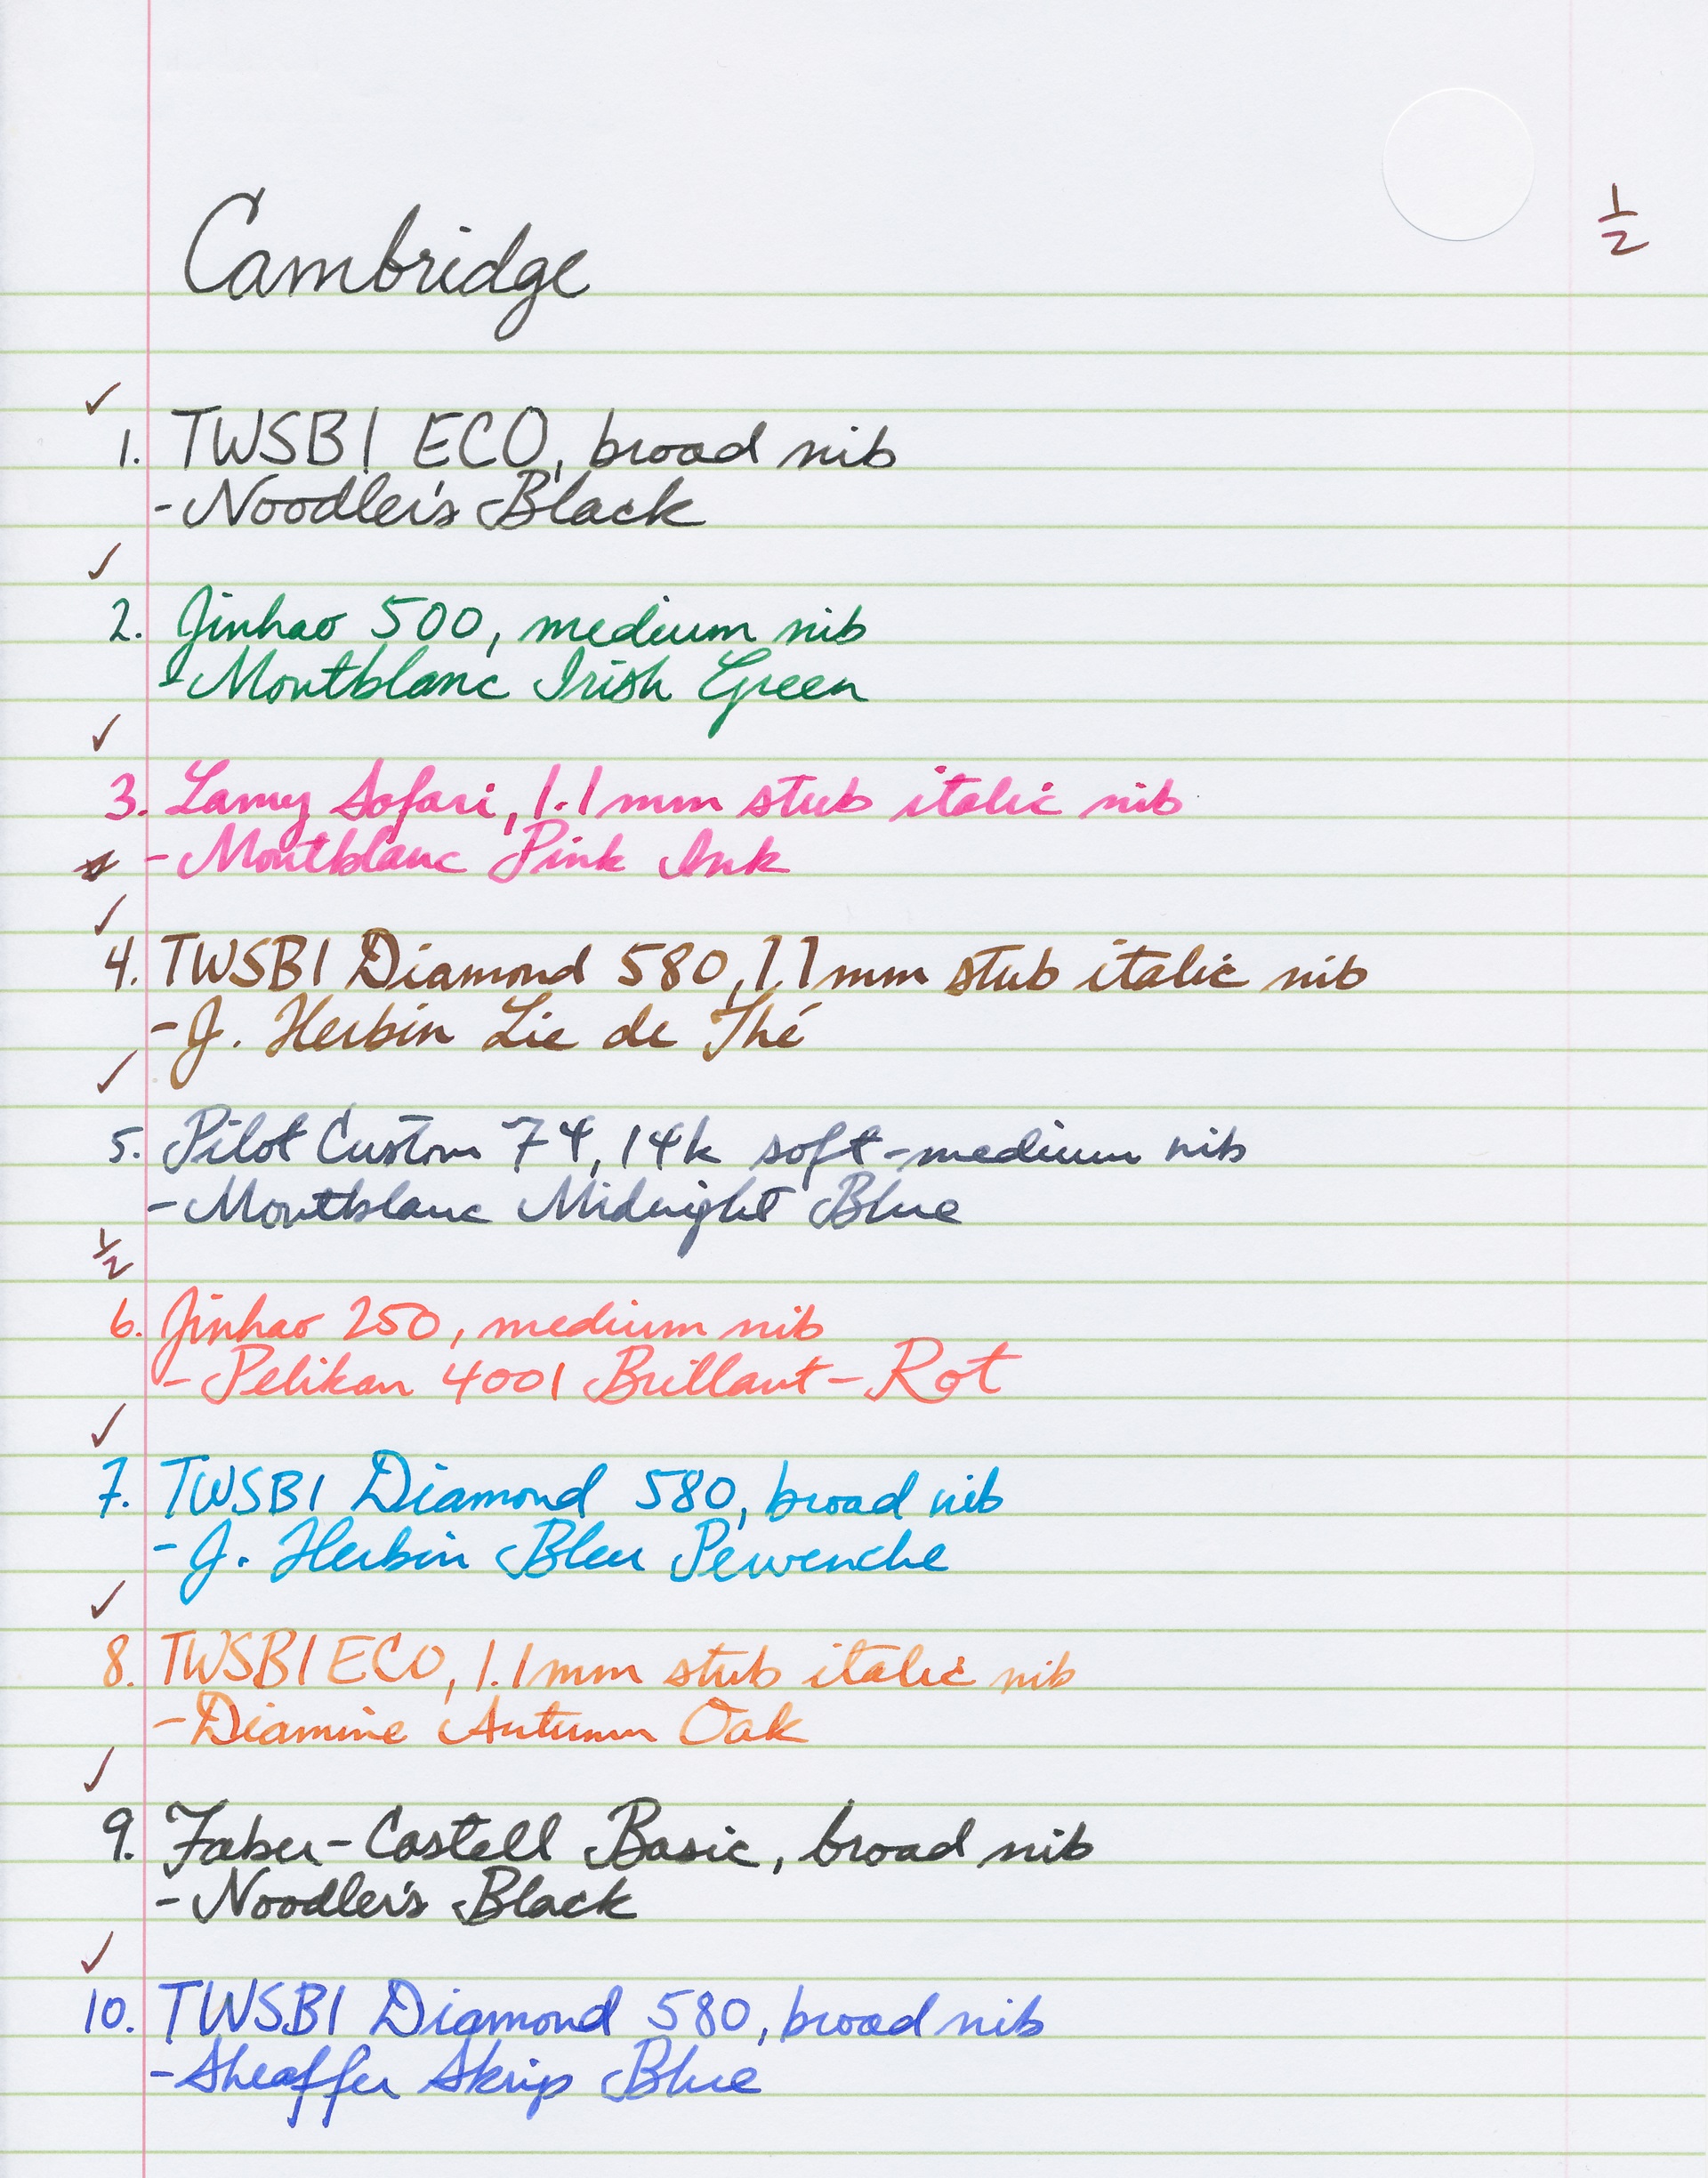 Cambridge
1/2
✓
1. TWSBI ECO, broad nib
- Noodler's Black
✓
2. Jinhao 500, medium nib
- Montblanc Irish Green
✓
3. Lamy Safari, 1.1mm stub italic nib
- Montblanc Pink Ink
✓
4. TWSBI Diamond 580, 1.1mm stub italic nib
- J. Herbin Lie de Thé
✓
5. Pilot Custom 74, 14k soft-medium nib
- Montblanc Midnight Blue
1/2
6. Jinhao 250, medium nib
- Pelikan 4001 Brillant-Rot
✓
7. TWSBI Diamond 580, broad nib
- J. Herbin Bleu Pervenche
✓
8. TWSBI ECO, 1.1mm stub italic nib
- Diamine Autumn Oak
✓
9. Faber-Castell Basic, broad nib
- Noodler's Black
✓
10. TWSBI Diamond 580, broad nib
- Sheaffer Skrip Blue